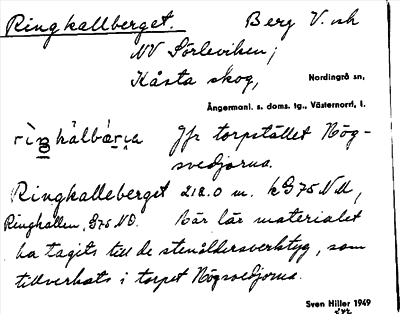 Ringkallberget. Berg V. och
NV Sörleviken;
Kåsta skog,
Nordingrå sn,
Ångermanl. s. doms. tg., Västernorrl. l.
Jfr torpstället Hög-
svedjorna.
Ringkalleberget 218.0 m. kG75NV,
Ringkallen, G75NO. Här lär materialet
ha tagits till de stenåldersverktyg, som
tillverkats i torpet Högsvedjorna.
Sven Hiller 1949